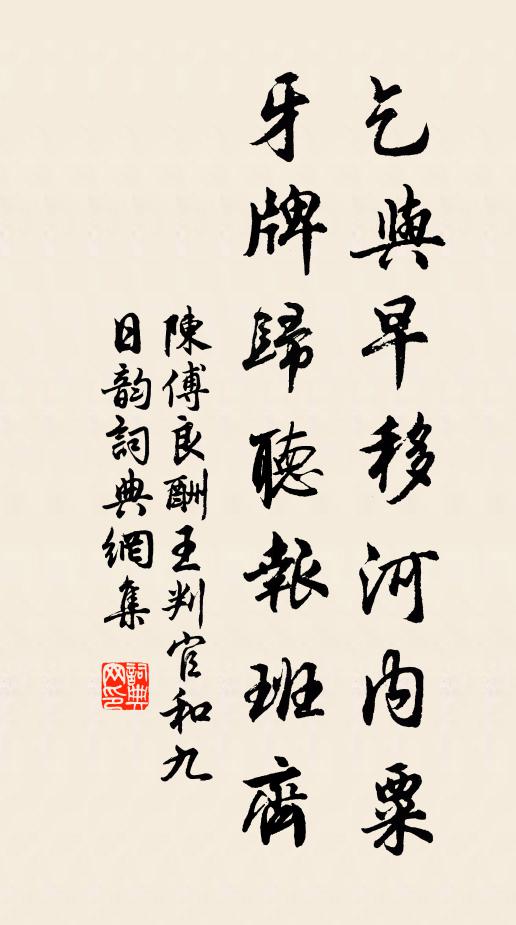 乞與早移河內粟
牙牌歸聽報班齊
陳傅良酬王判官和九
日韵詞典網集
詞典
网印